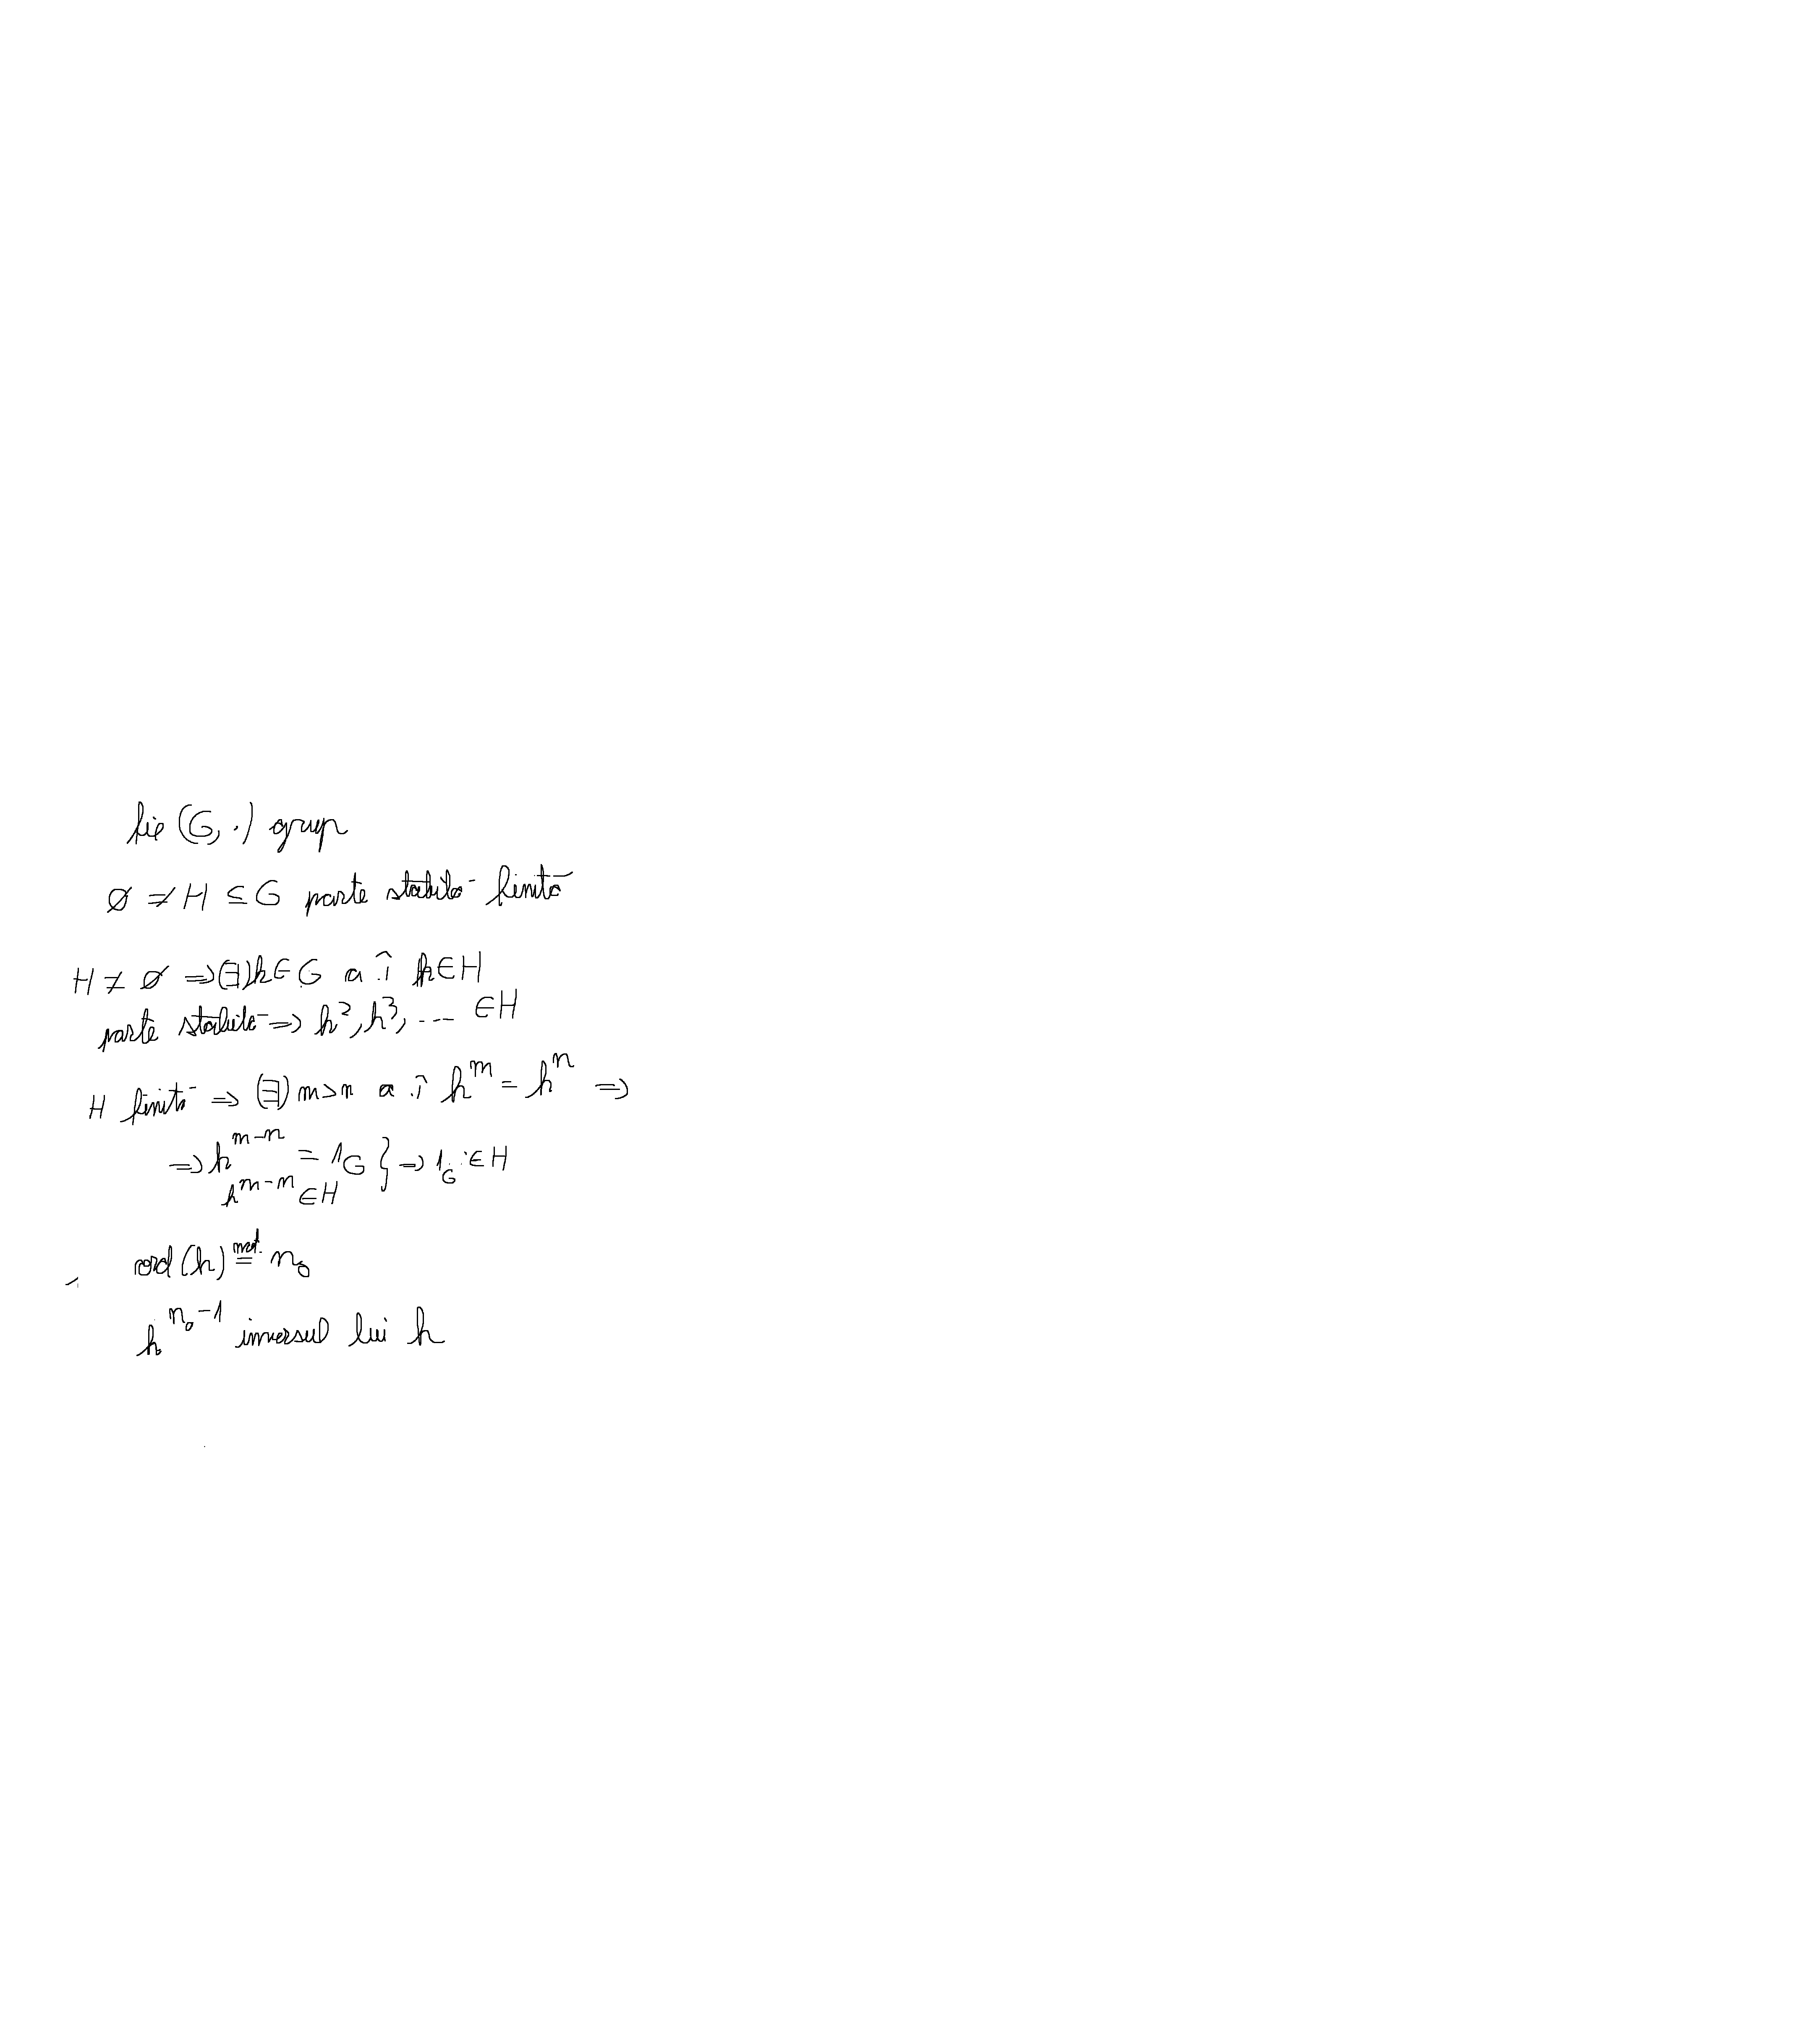 fie (G, ·) grup
∅ ≠ H ⊆ G parte stabilă finită
H ≠ ∅ ⇒ (∃) h ∈ G a.î h ∈ H
parte stabilă ⇒ h², h³, ... ∈ H
H finită ⇒ (∃) m > n a.î h^m = h^n ⇒
⇒ h^{m-n} = 1_G } ⇒ 1_G ∈ H
h^{m-n} ∈ H
ord(h) \overset{not.}{=} n_0
h^{n_0-1} inversul lui h